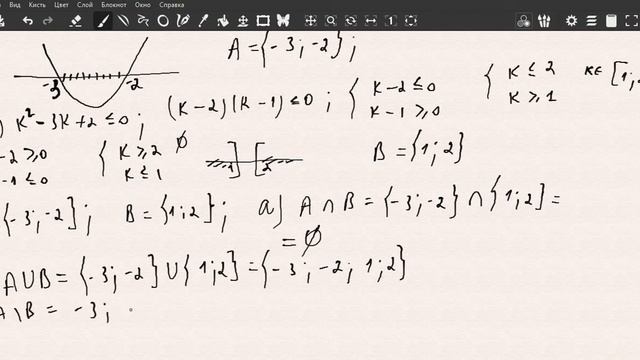 Вид Кисть Цвет Слой Блокнот Окно Справка
A = {-3; -2};
-3 -2
k² - 3k + 2 ≤ 0; (k-2)(k-1) ≤ 0; { k-2 ≤ 0 { k ≤ 2 k ∈ [1;
k-1 ≥ 0 k ≥ 1
-2 ≥ 0 { k ≥ 2 ∅ 1 2 B = {1; 2}
-1 ≤ 0 k ≤ 1
{-3; -2}; B = {1; 2}; a) A ∩ B = {-3; -2} ∩ {1; 2} =
= ∅
A∪B = {-3; -2} ∪ {1; 2} = {-3; -2; 1; 2}
A \ B = -3;